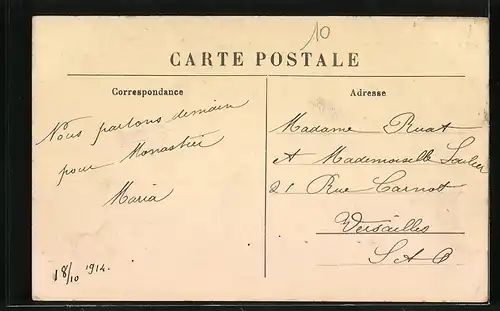 10
CARTE POSTALE
Correspondance
Nous partons demain
pour Monastier
Maria
18/10 1914.
Adresse
Madame Ruat
et Mademoiselle
21 Rue Carnot
Versailles
S et O